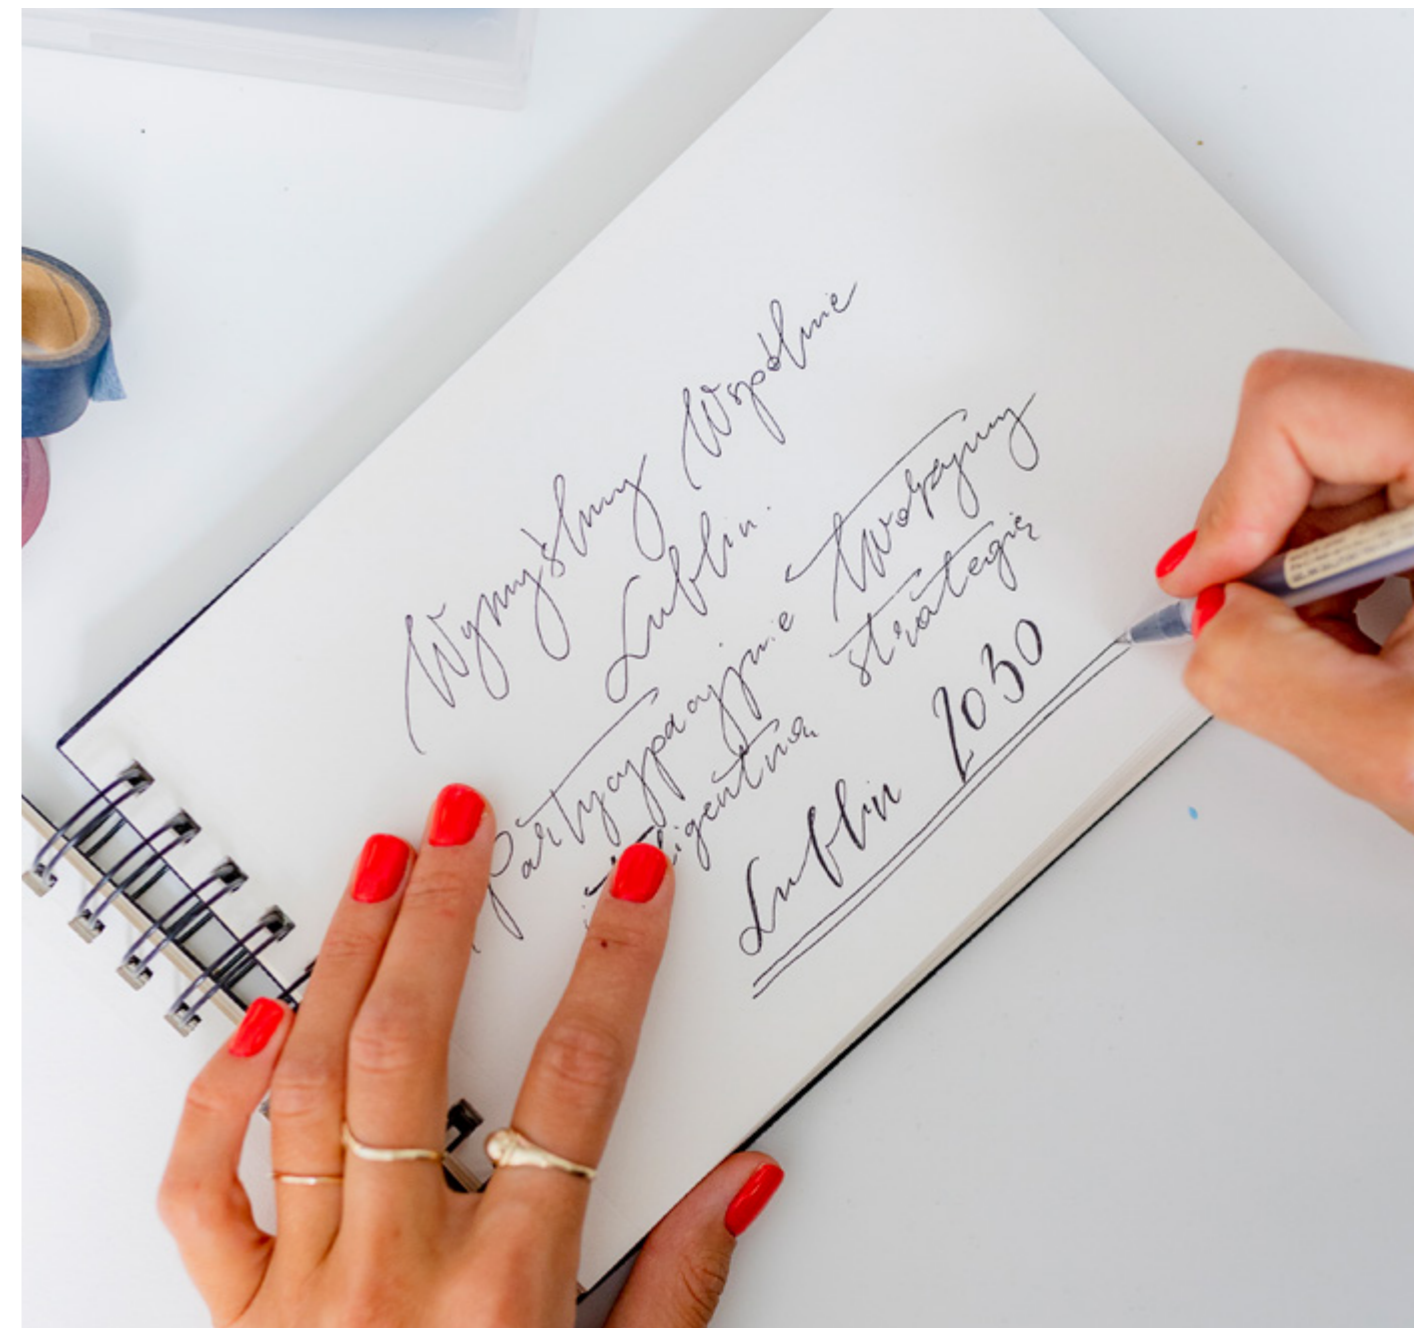 Wymyślmy Wspólnie
Lublin.
Partycypacyjnie Tworzymy
strategię
Lublin 2030